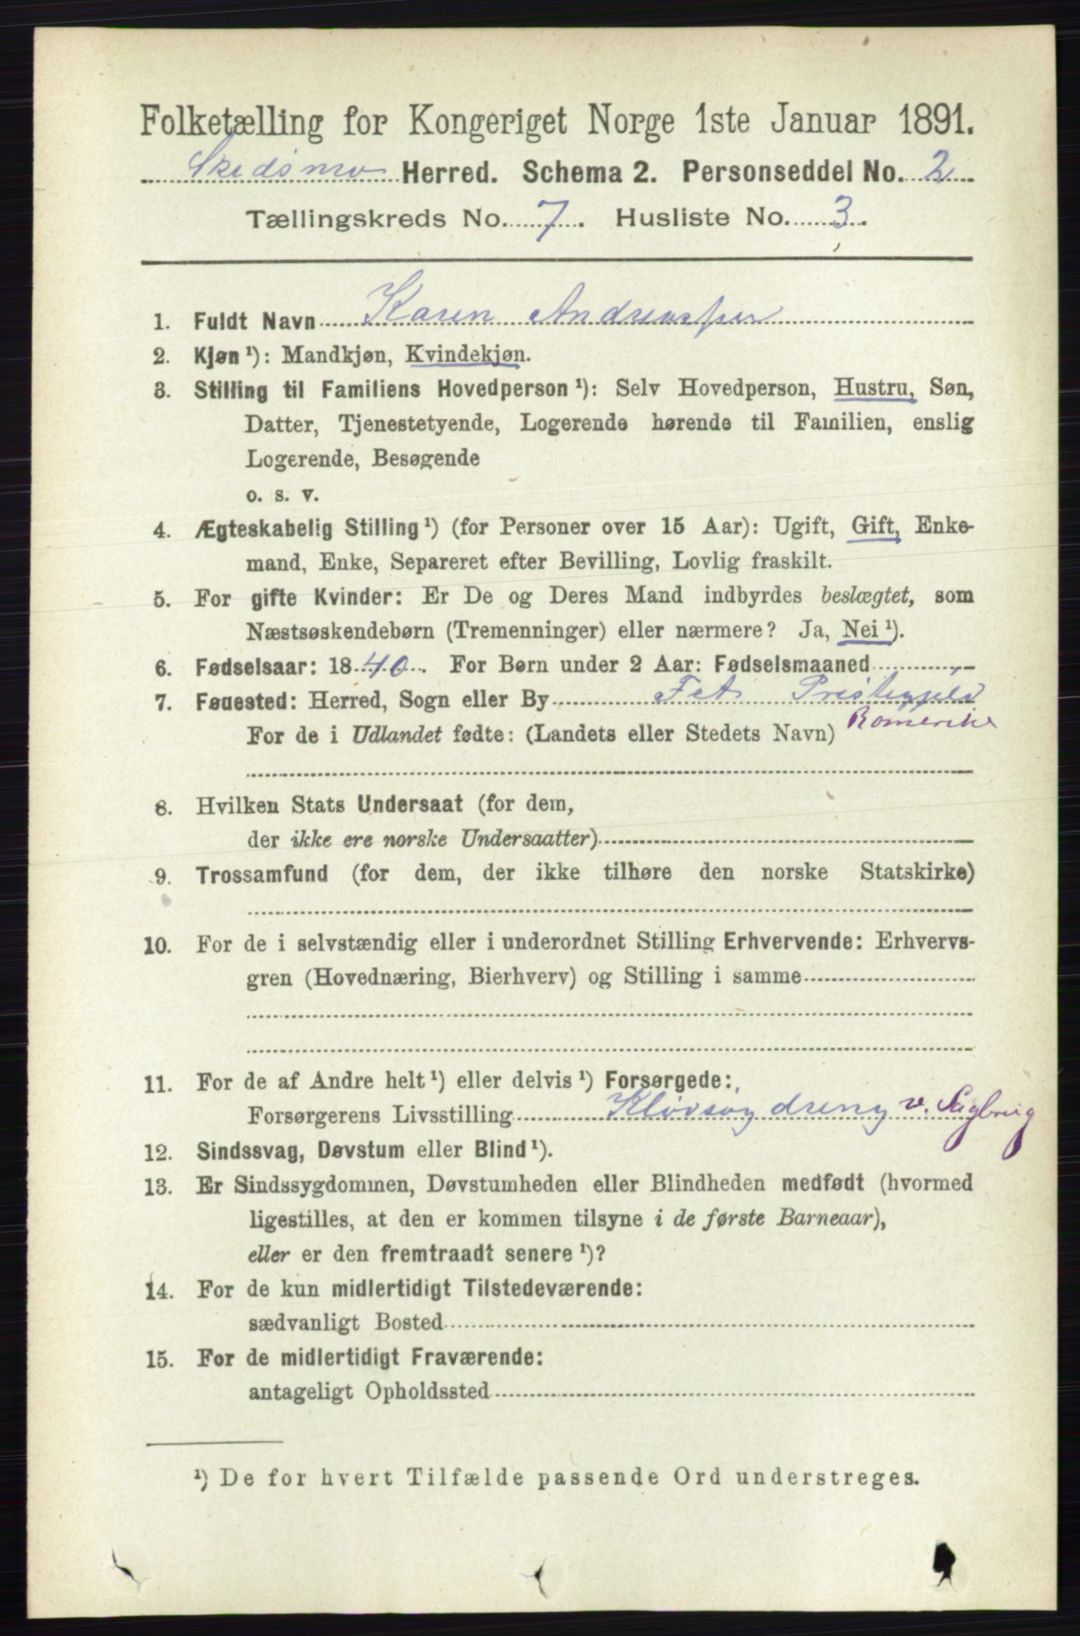 Folketælling for Kongeriget Norge 1ste Januar 1891.
Skedsmo Herred. Schema 2. Personseddel No. 2
Tællingskreds No. 7. Husliste No. 3.
1. Fuldt Navn Karen
2. Kjøn ¹): Mandkjøn, Kvindekjøn.
3. Stilling til Familiens Hovedperson ¹): Selv Hovedperson, Hustru, Søn,
Datter, Tjenestetyende, Logerende hørende til Familien, enslig
Logerende, Besøgende
o. s. v.
4. Ægteskabelig Stilling ¹) (for Personer over 15 Aar): Ugift, Gift, Enke-
mand, Enke, Separeret efter Bevilling, Lovlig fraskilt.
5. For gifte Kvinder: Er De og Deres Mand indbyrdes beslægtet, som
Næstsøskendebørn (Tremenninger) eller nærmere? Ja, Nei ¹).
6. Fødselsaar: 1840. For Børn under 2 Aar: Fødselsmaaned
7. Fødested: Herred, Sogn eller By Fet
For de i Udlandet fødte: (Landets eller Stedets Navn) Romerike
8. Hvilken Stats Undersaat (for dem,
der ikke ere norske Undersaatter)
9. Trossamfund (for dem, der ikke tilhøre den norske Statskirke)
10. For de i selvstændig eller i underordnet Stilling Erhvervende: Erhvervs-
gren (Hovednæring, Bierhverv) og Stilling i samme
11. For de af Andre helt ¹) eller delvis ¹) Forsørgede:
Forsørgerens Livsstilling Kløvsagdreng v. Sagbrug
12. Sindssvag, Døvstum eller Blind ¹).
13. Er Sindssygdommen, Døvstumheden eller Blindheden medfødt (hvormed
ligestilles, at den er kommen tilsyne i de første Barneaar),
eller er den fremtraadt senere ¹)?
14. For de kun midlertidigt Tilstedeværende:
sædvanligt Bosted
15. For de midlertidigt Fraværende:
antageligt Opholdssted
¹) De for hvert Tilfælde passende Ord understreges.